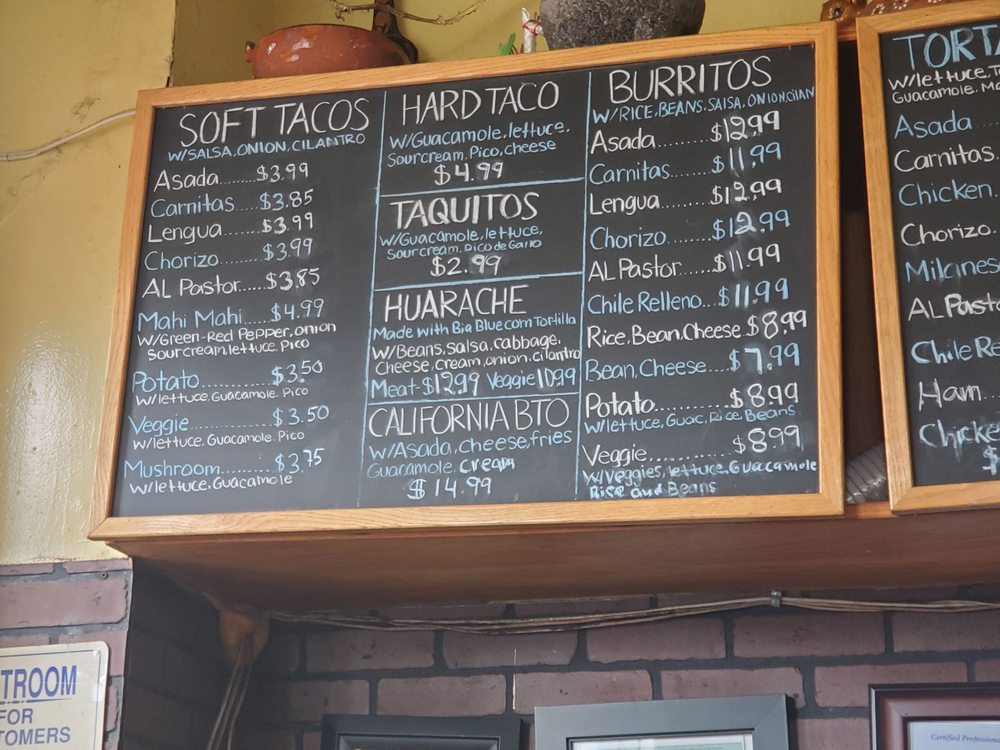 SOFT TACOS
W/SALSA, ONION, CILANTRO
Asada.......$3.99
Carnitas.....$3.85
Lengua.......$3.99
Chorizo......$3.99
AL Pastor.....$3.85
Mahi Mahi.....$4.99
W/Green-Red Pepper, onion
Sour cream, lettuce, Pico
Potato...........$3.50
W/lettuce, Guacamole, Pico
Veggie.............$3.50
W/lettuce, Guacamole, Pico
Mushroom.........$3.75
W/lettuce, Guacamole
HARD TACO
W/Guacamole, lettuce,
Sour cream, Pico, cheese
$4.99
TAQUITOS
W/Guacamole, lettuce,
Sour cream, Pico de Gallo
$2.99
HUARACHE
Made with Big Blue corn Tortilla
W/Beans, salsa, cabbage,
Cheese, cream, onion, cilantro
Meat-$12.99 Veggie 10.99
CALIFORNIA BTO
W/Asada, cheese, fries
Guacamole, cream
$14.99
BURRITOS
W/RICE, BEANS, SALSA, ONION,
Asada...........$12.99
Carnitas.........$11.99
Lengua..........$12.99
Chorizo........$12.99
AL Pastor.....$11.99
Chile Relleno...$11.99
Rice, Bean, Cheese $8.99
Bean, Cheese....$7.99
Potato...........$8.99
W/lettuce, Guac, Rice Beans
Veggie.............$8.99
W/veggies, lettuce, Guacamole
Rice and Beans
TORTA
W/lettuce, T
Guacamole, Ma
Asada....
Carnitas.
Chicken.
Chorizo.
Milanes
AL Pasto
Chile Re
Ham....
Chicke
$
TROOM
FOR
TOMERS
Certified Professio